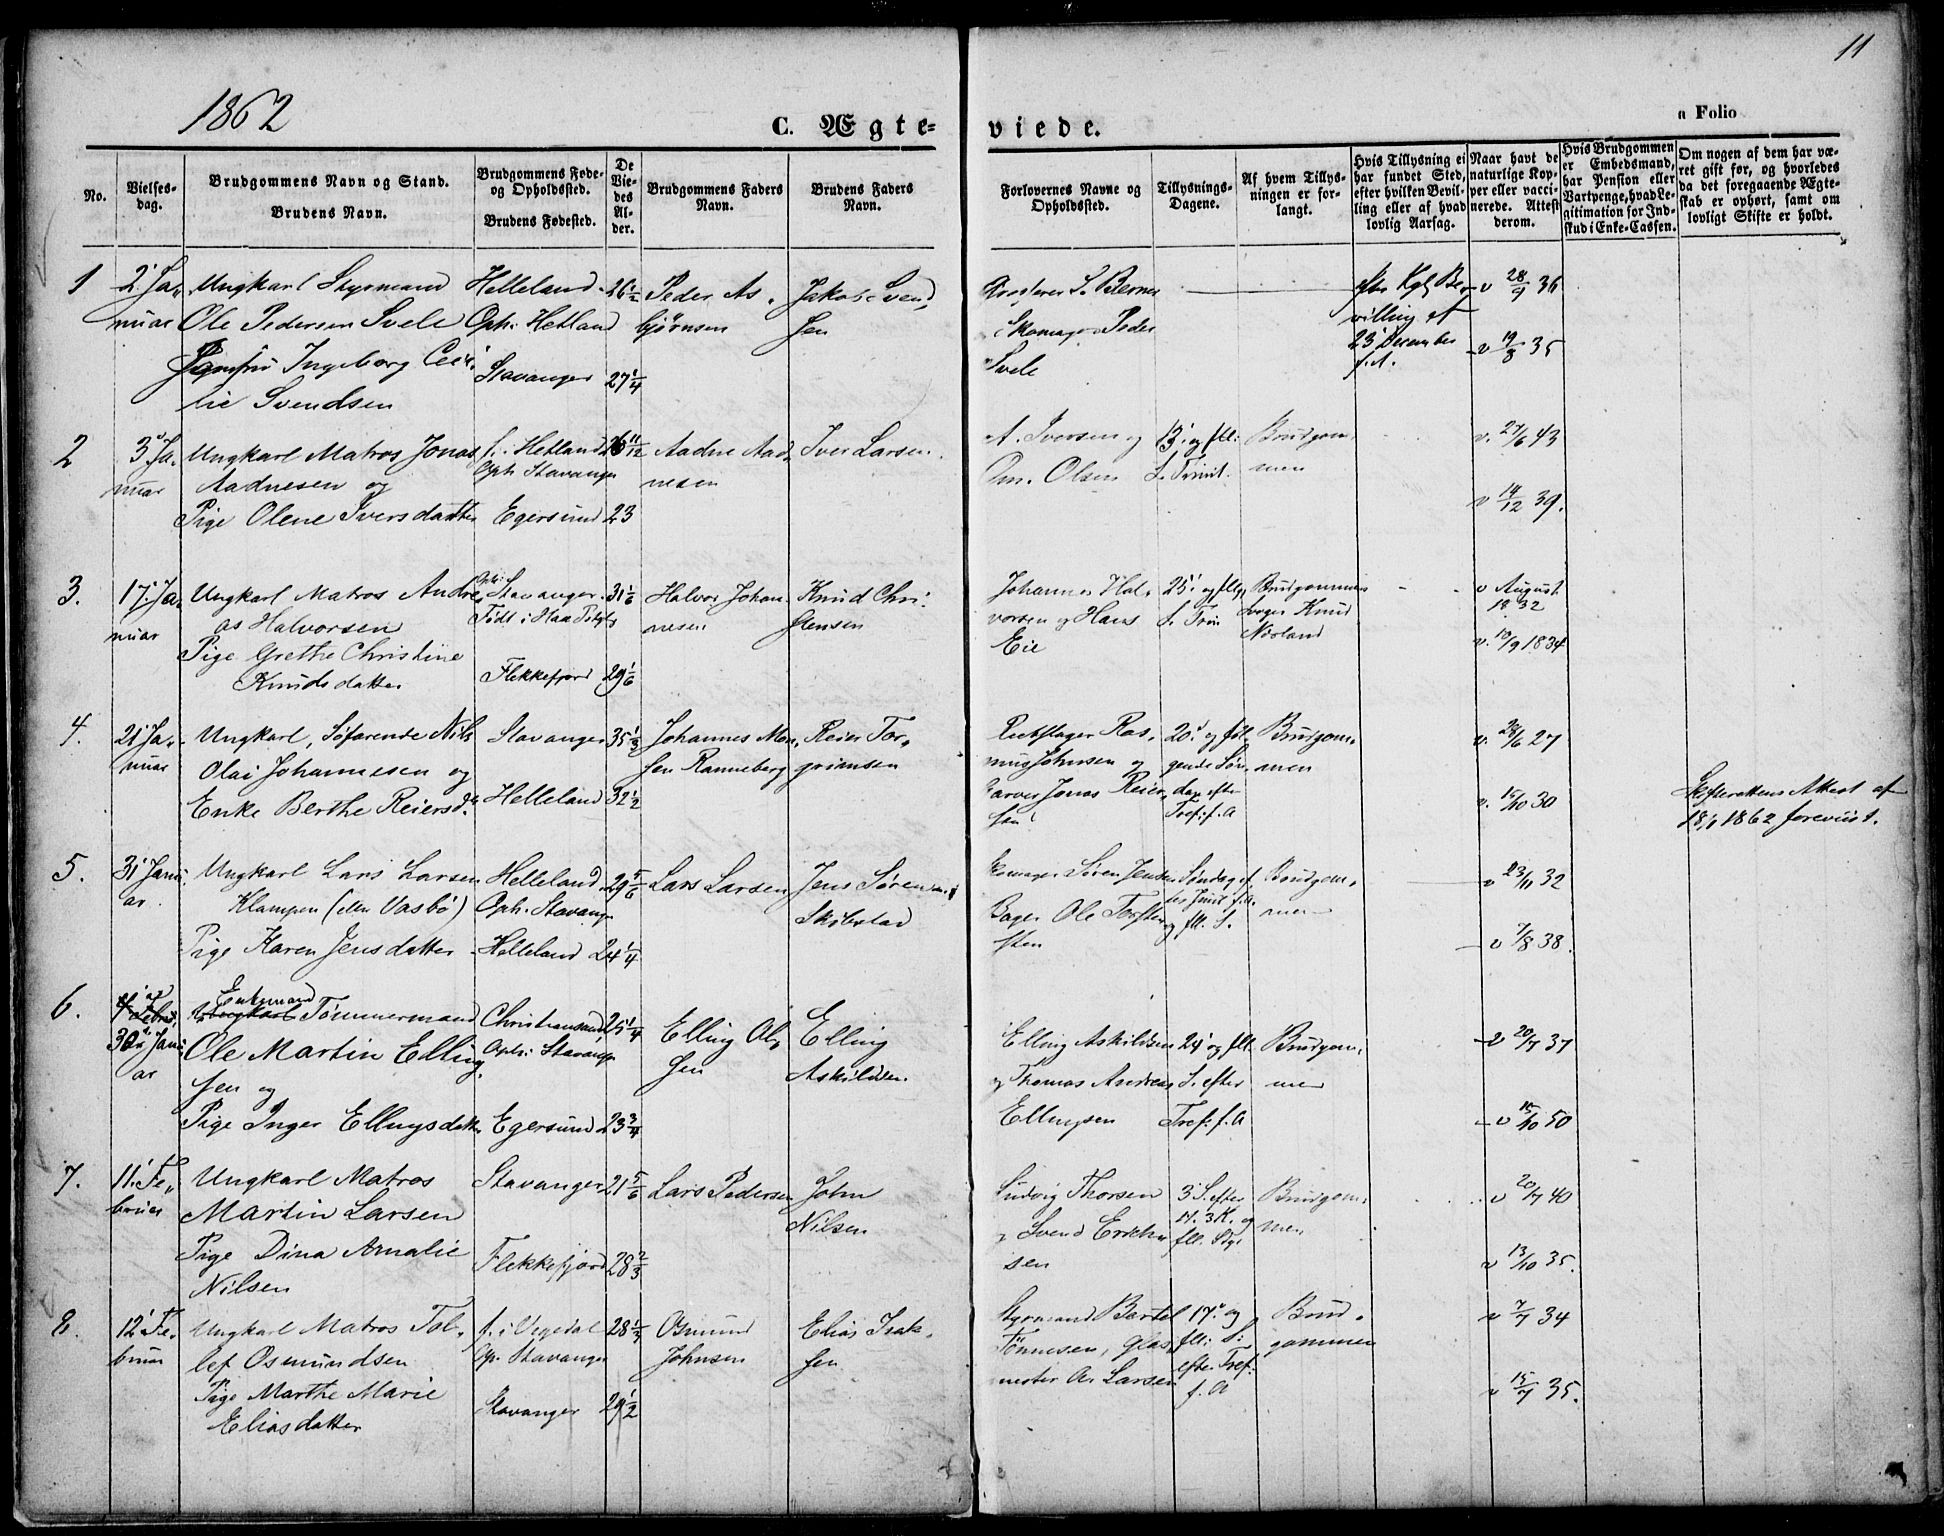 11
1862
C. Ægte-
viede.
a Folio
No.
Vielses-
dag.
Brudgommens Navn og Stand.
Brudens Navn.
Brudgommens Føde-
og Opholdssted.
Brudens Fødested.
De
Vie-
des
Al-
der.
Brudgommens Faders
Navn.
Brudens Faders
Navn.
Forlovernes Navne og
Opholdssted.
Tillysnings-
Dagene.
Af hvem Tillys-
ningen er for-
langt.
Hvis Tillysning ei
har fundet Sted,
efter hvilken Bevil-
ling eller af hvad
lovlig Aarsag.
Naar havt de
naturlige Kop-
per eller vacci-
nerede. Attest
derom.
Hvis Brudgommen
er Embedsmand,
har Pension eller
Vartpenge, hvad Le-
gitimation for Ind-
skud i Enke-Cassen.
Om nogen af dem har væ-
ret gift før, og hvorledes
da det foregaaende Ægte-
skab er ophørt, samt om
lovligt Skifte er holdt.
1
2 Ja-
nuar
Ungkarl Styrmand
Ole Pedersen Svele
Jomfru Ingeborg Ceci-
lie Svendsen
Helleland
Oph: Hetland
Stavanger
26 1/2
27 1/4
Peder As-
bjørnsen
Jakob Svend-
sen
S. Berner
Skomager Peder
Svele
efter Kgl Be-
villing af
23 December
f. A.
v 28/9 36
v 19/8 35
2
3 Ja-
nuar
Ungkarl Matros Jonas
Aadnesen og
Pige Olene Iversdatter
f. i Hetland
Oph Stavanger
Egersund
26 11/12
23
Aadne Aad-
nesen
Iver Larsen
A. Iversen og
Om. Olsen
13 og fll:
S. Trinit.
Brudgom-
men
v. 27/6 43
v 14/12 39.
3.
17 Ja-
nuar
Ungkarl Matros Andre-
as Halvorsen
Pige Grethe Christine
Knudsdatter
Oph: Stavanger
Født i Haa Pstgj
Flekkefjord
31 1/6
29 1/6
Halvor Johan-
nesen
Knud Chri-
stensen
Johannes Hal-
vorsen og Hans
Eie
25 og flg
S. Trin
Brudgommens
Svoger Knud
Norland
v August
1832
v. 10/9 1834
4.
21 Ja-
nuar
Ungkarl, Søfarende Nils
Olai Johannesen og
Enke Berthe Reiersd.
Stavanger
Helleland
35 1/3
32 1/2
Johannes Mon-
sen Ranneberg
Reier Tor-
griumsen
Rebslager Ras-
mus Johnsen og
Garver Jonas Reier-
sen
20 og føl-
gende Søn-
dag efter
Tref: f. A
Brudgom-
men
v. 28/6 27
v. 15/10 30
Skifterettens Attest af
18/1 1862 forevist.
5.
31 Janu-
ar
Ungkarl Lars Larsen
Klampen (eller Vasbø)
Pige Karen Jensdatter
Helleland
Oph: Stavanger
Helleland
29 5/6
24 1/4
Lars Larsen
Jens Sørensen
Skibstad
Skomager Søren Jensen
Bager Ole Torste-
sten
Søndag ef-
ter Trinit f. A.
og fll. S.
Brudgom-
men
v 23/11 32
v 7/8 38.
6.
4 Febru-
ar
30 Janu-
ar
Enkemand
Ungkarl Tømmermand
Ole Martin Elling-
sen og
Pige Inger Ellingsdatter
Christiansand
Oph: Stavanger
Egersund
25 1/4
23 3/4
Elling Ol-
sen
Elling
Askildsen
Elling Askildsen
og Thomas Andreas
Ellingsen
24 og fll.
S. efter
Tref. f. A
Brudgom-
men
v 20/7 37
v 15/10 50
7.
11 Fe-
bruar
Ungkarl Matros
Martin Larsen
Pige Dina Amalie
Nilsen
Stavanger
Flekkefjord
21 5/6
28 2/3
Lars Pedersen
John
Nilsen
Ludvig Thorsen
og Svend Erich-
sen
3 S. efter
H. 3 K. og
fll. Sdg:
Brudgom-
men
v 20/7 40
v 13/10 35.
8.
12 Fe-
bruar
Ungkarl Matros Tol-
lef Osmundsen
Pige Marthe Marie
Eliasdatter
f. i
Op. Stavanger
Stavanger
28 1/3
29 1/2
Osmund
Johnsen
Elias Isak-
sen
Styrmand Bertel
Tønnesen, Glas-
mester A. Larsen
17 og
fll: S:
efter Tref:
f. A
Brud-
gommen
v 7/7 34
v 15/7 35.